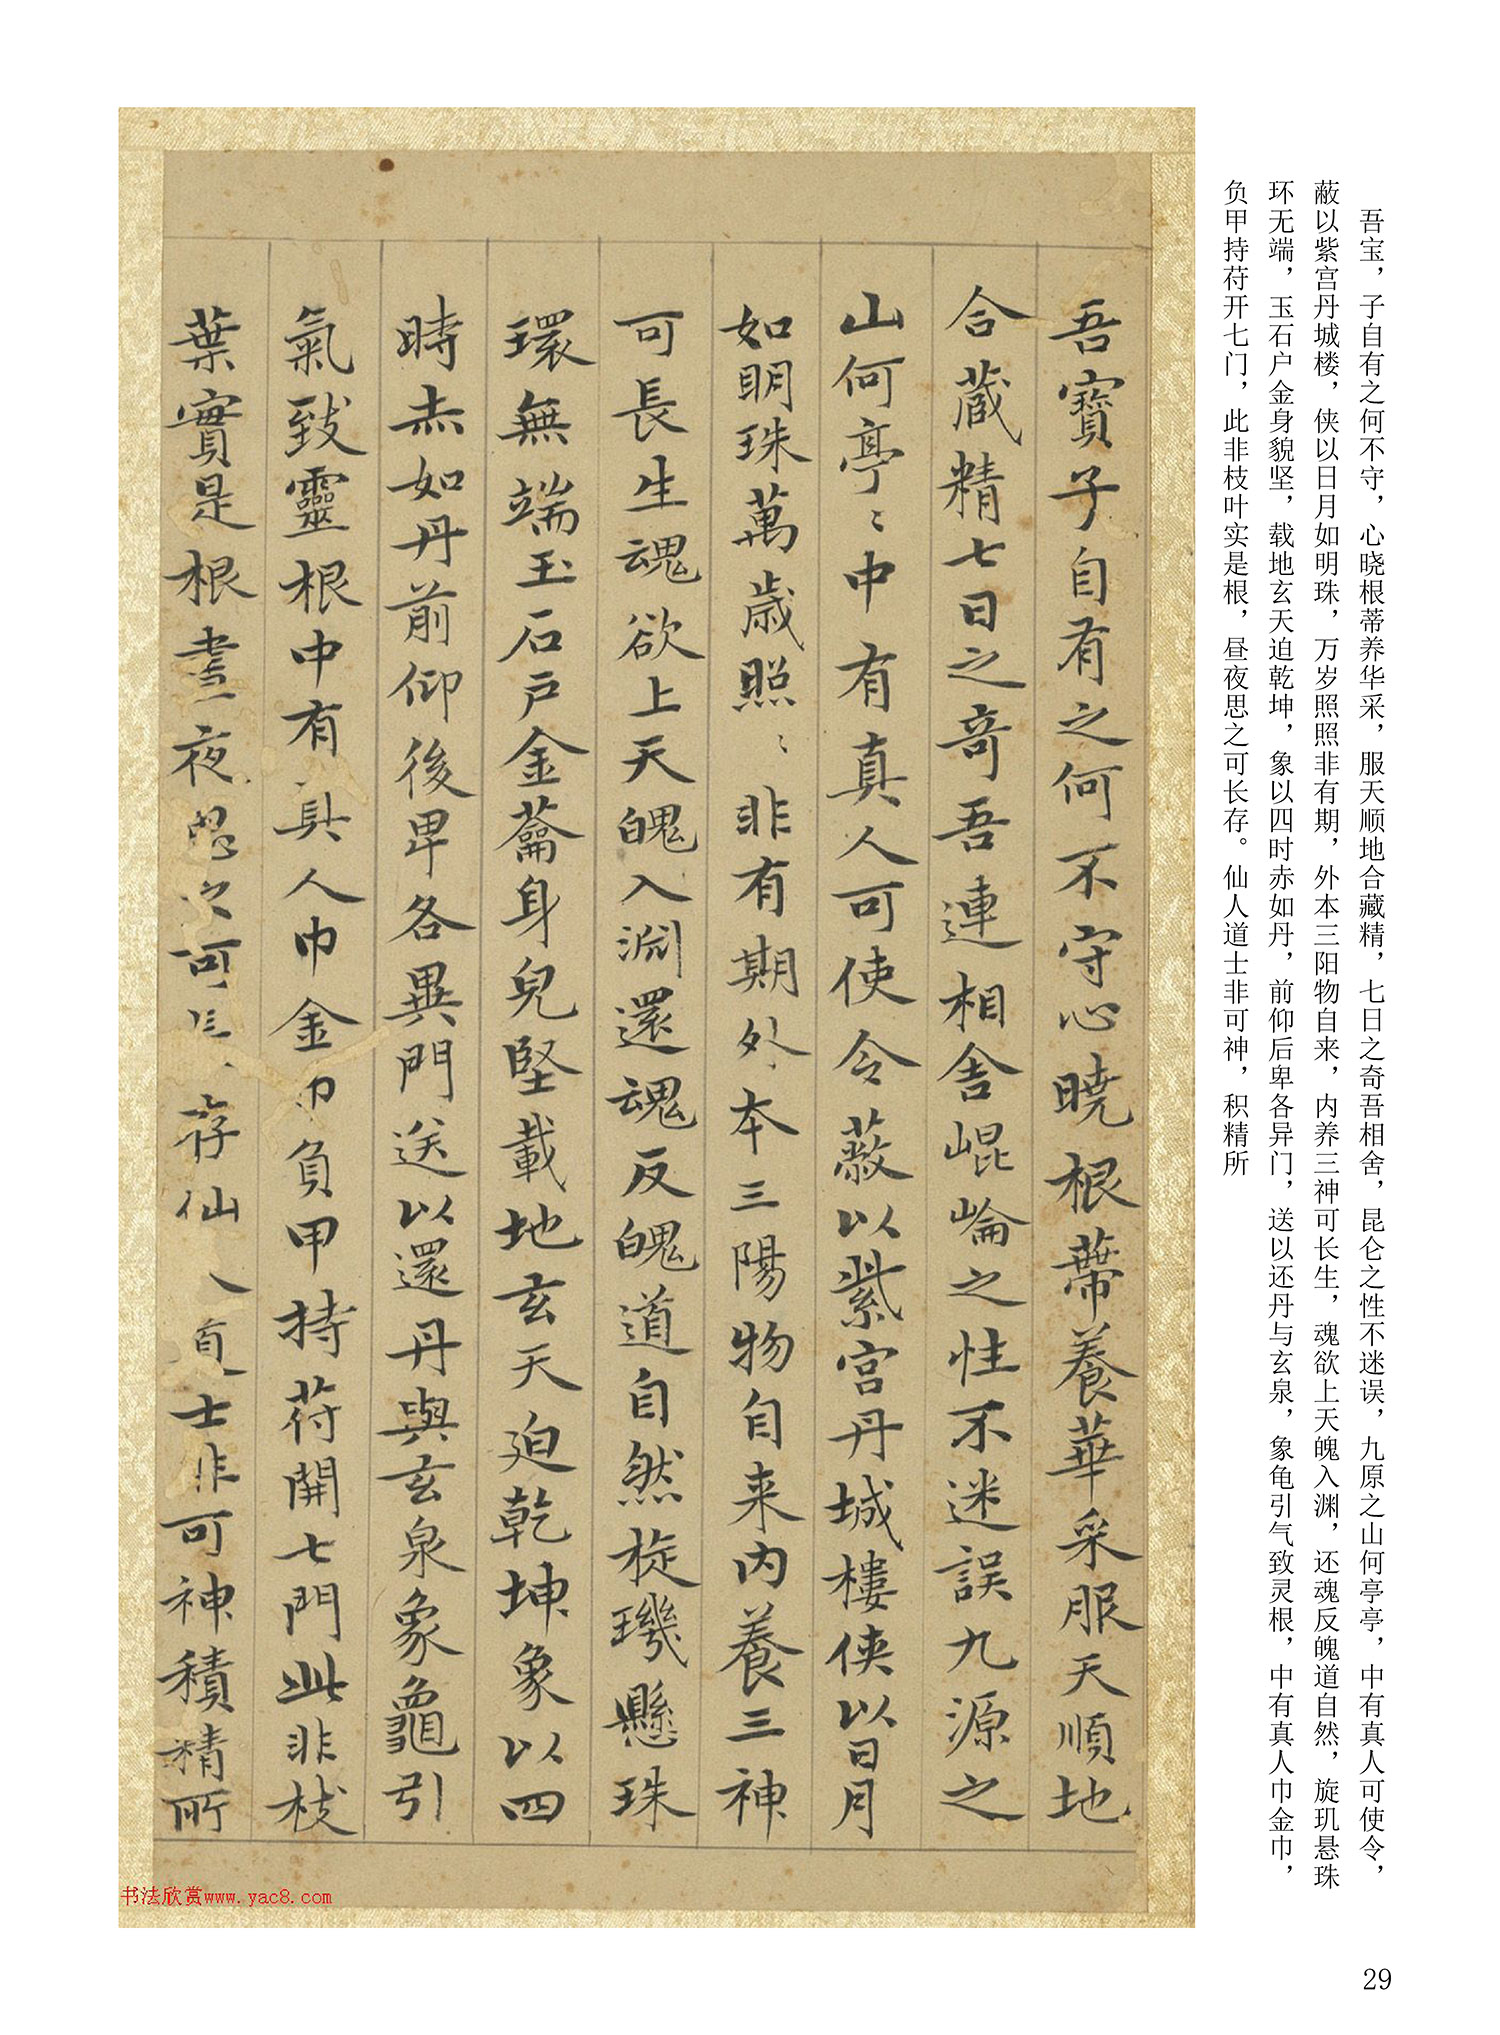 吾宝，子自有之何不守，心晓根蒂养华采，服天顺地合藏精，七日之奇吾相舍，昆仑之性不迷误，九原之山何亭亭，中有真人可使令，
蔽以紫宫丹城楼，侠以日月如明珠，万岁照照非有期，外本三阳物自来，内养三神可长生，魂欲上天魄入渊，还魂反魄道自然，旋玑悬珠
环无端，玉石户金身貌坚，载地玄天迫乾坤，象以四时赤如丹，前仰后卑各异门，送以还丹与玄泉，象龟引气致灵根，中有真人巾金巾，
负甲持苻开七门，此非枝叶实是根，昼夜思之可长存。仙人道士非可神，积精所
吾寶子自有之何不守心曉根蔕養華采服天順地
合蔵精七日之奇吾連相舎崐崘之性不迷誤九源之
山何亭〻中有真人可使令蔽以紫宮丹城樓侠以日月
如明珠萬歳照〻非有期外本三陽物自来内養三神
可長生魂欲上天魄入淵還魂反魄道自然旋璣懸珠
環無端玉石戸金籥身皃堅載地玄天迫乾坤象以四
時赤如丹前仰後卑各異門送以還丹與玄泉象龜引
氣致靈根中有真人巾金巾負甲持苻開七門此非枝
葉實是根晝夜思之可長存仙人道士非可神積精所
书法欣赏www.yac8.com
29